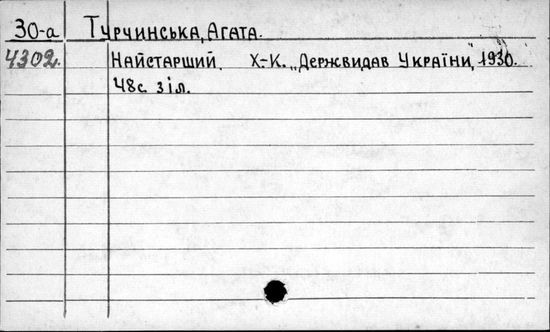 30-а Турчинська, Агата.
4302. Найстарший. Х-К. „Держвидав України," 1930.
48с. з іл.